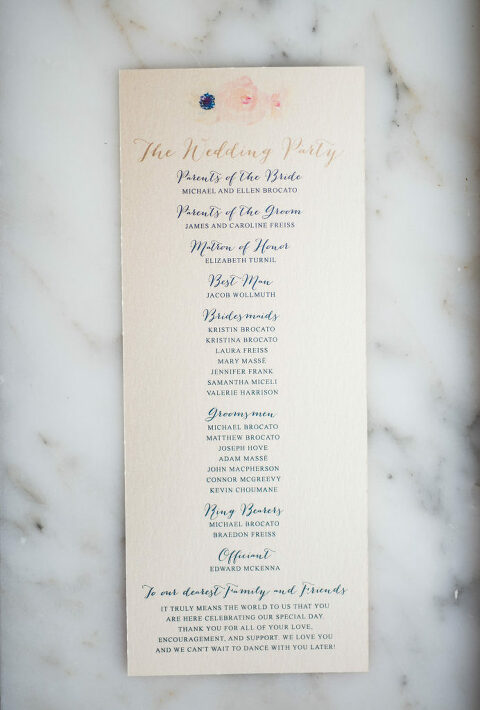 The Wedding Party
Parents of the Bride
MICHAEL AND ELLEN BROCATO
Parents of the Groom
JAMES AND CAROLINE FREISS
Matron of Honor
ELIZABETH TURNIL
Best Man
JACOB WOLLMUTH
Bridesmaids
KRISTIN BROCATO
KRISTINA BROCATO
LAURA FREISS
MARY MASSÉ
JENNIFER FRANK
SAMANTHA MICELI
VALERIE HARRISON
Groomsmen
MICHAEL BROCATO
MATTHEW BROCATO
JOSEPH HOVE
ADAM MASSÉ
JOHN MACPHERSON
CONNOR MCGREEVY
KEVIN CHOUMANE
Ring Bearers
MICHAEL BROCATO
BRAEDON FREISS
Officiant
EDWARD MCKENNA
To our dearest Family and Friends
IT TRULY MEANS THE WORLD TO US THAT YOU
ARE HERE CELEBRATING OUR SPECIAL DAY.
THANK YOU FOR ALL OF YOUR LOVE,
ENCOURAGEMENT, AND SUPPORT. WE LOVE YOU
AND WE CAN'T WAIT TO DANCE WITH YOU LATER!